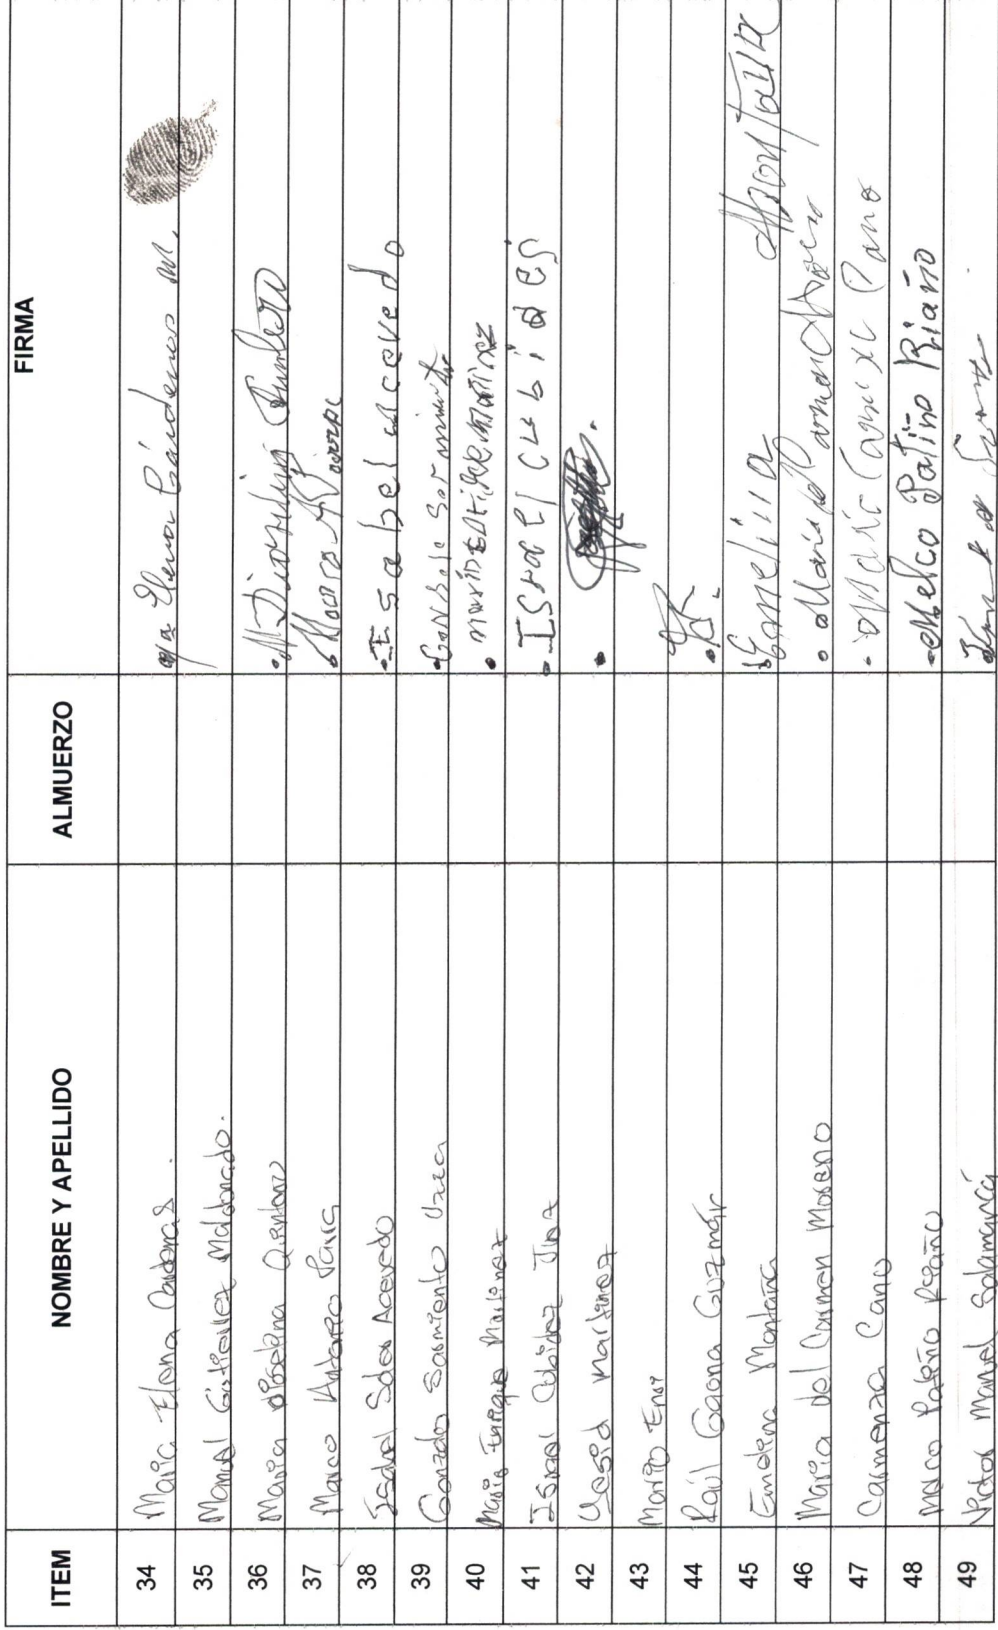 ITEM NOMBRE Y APELLIDO ALMUERZO FIRMA
34 Maria Elena Cardenas. Ma Elena Cárdenas M.
35 Manuel Gutierrez Maldonado.
36 Maria Diocelina Quintero
37 Marco Antonio Parra Marco Parra
38 Isabel Soler Acevedo Isabel Acevedo
39 Gonzalo Sarmiento Gonzalo Sarmiento
40 Mario Enrique Martinez Mario Enrique Martinez
41 Israel Cubides Israel Cubides
42 Yesid Martinez
43 Mario
44 Raúl Gaona Guzmán
45 Montaña Montaña
46 Maria del Carmen Moreno Maria del Carmen
47 Carmenza Cano Maria Cano
48 Patiño Riaño Patiño Riaño
49 Manuel Salamanca